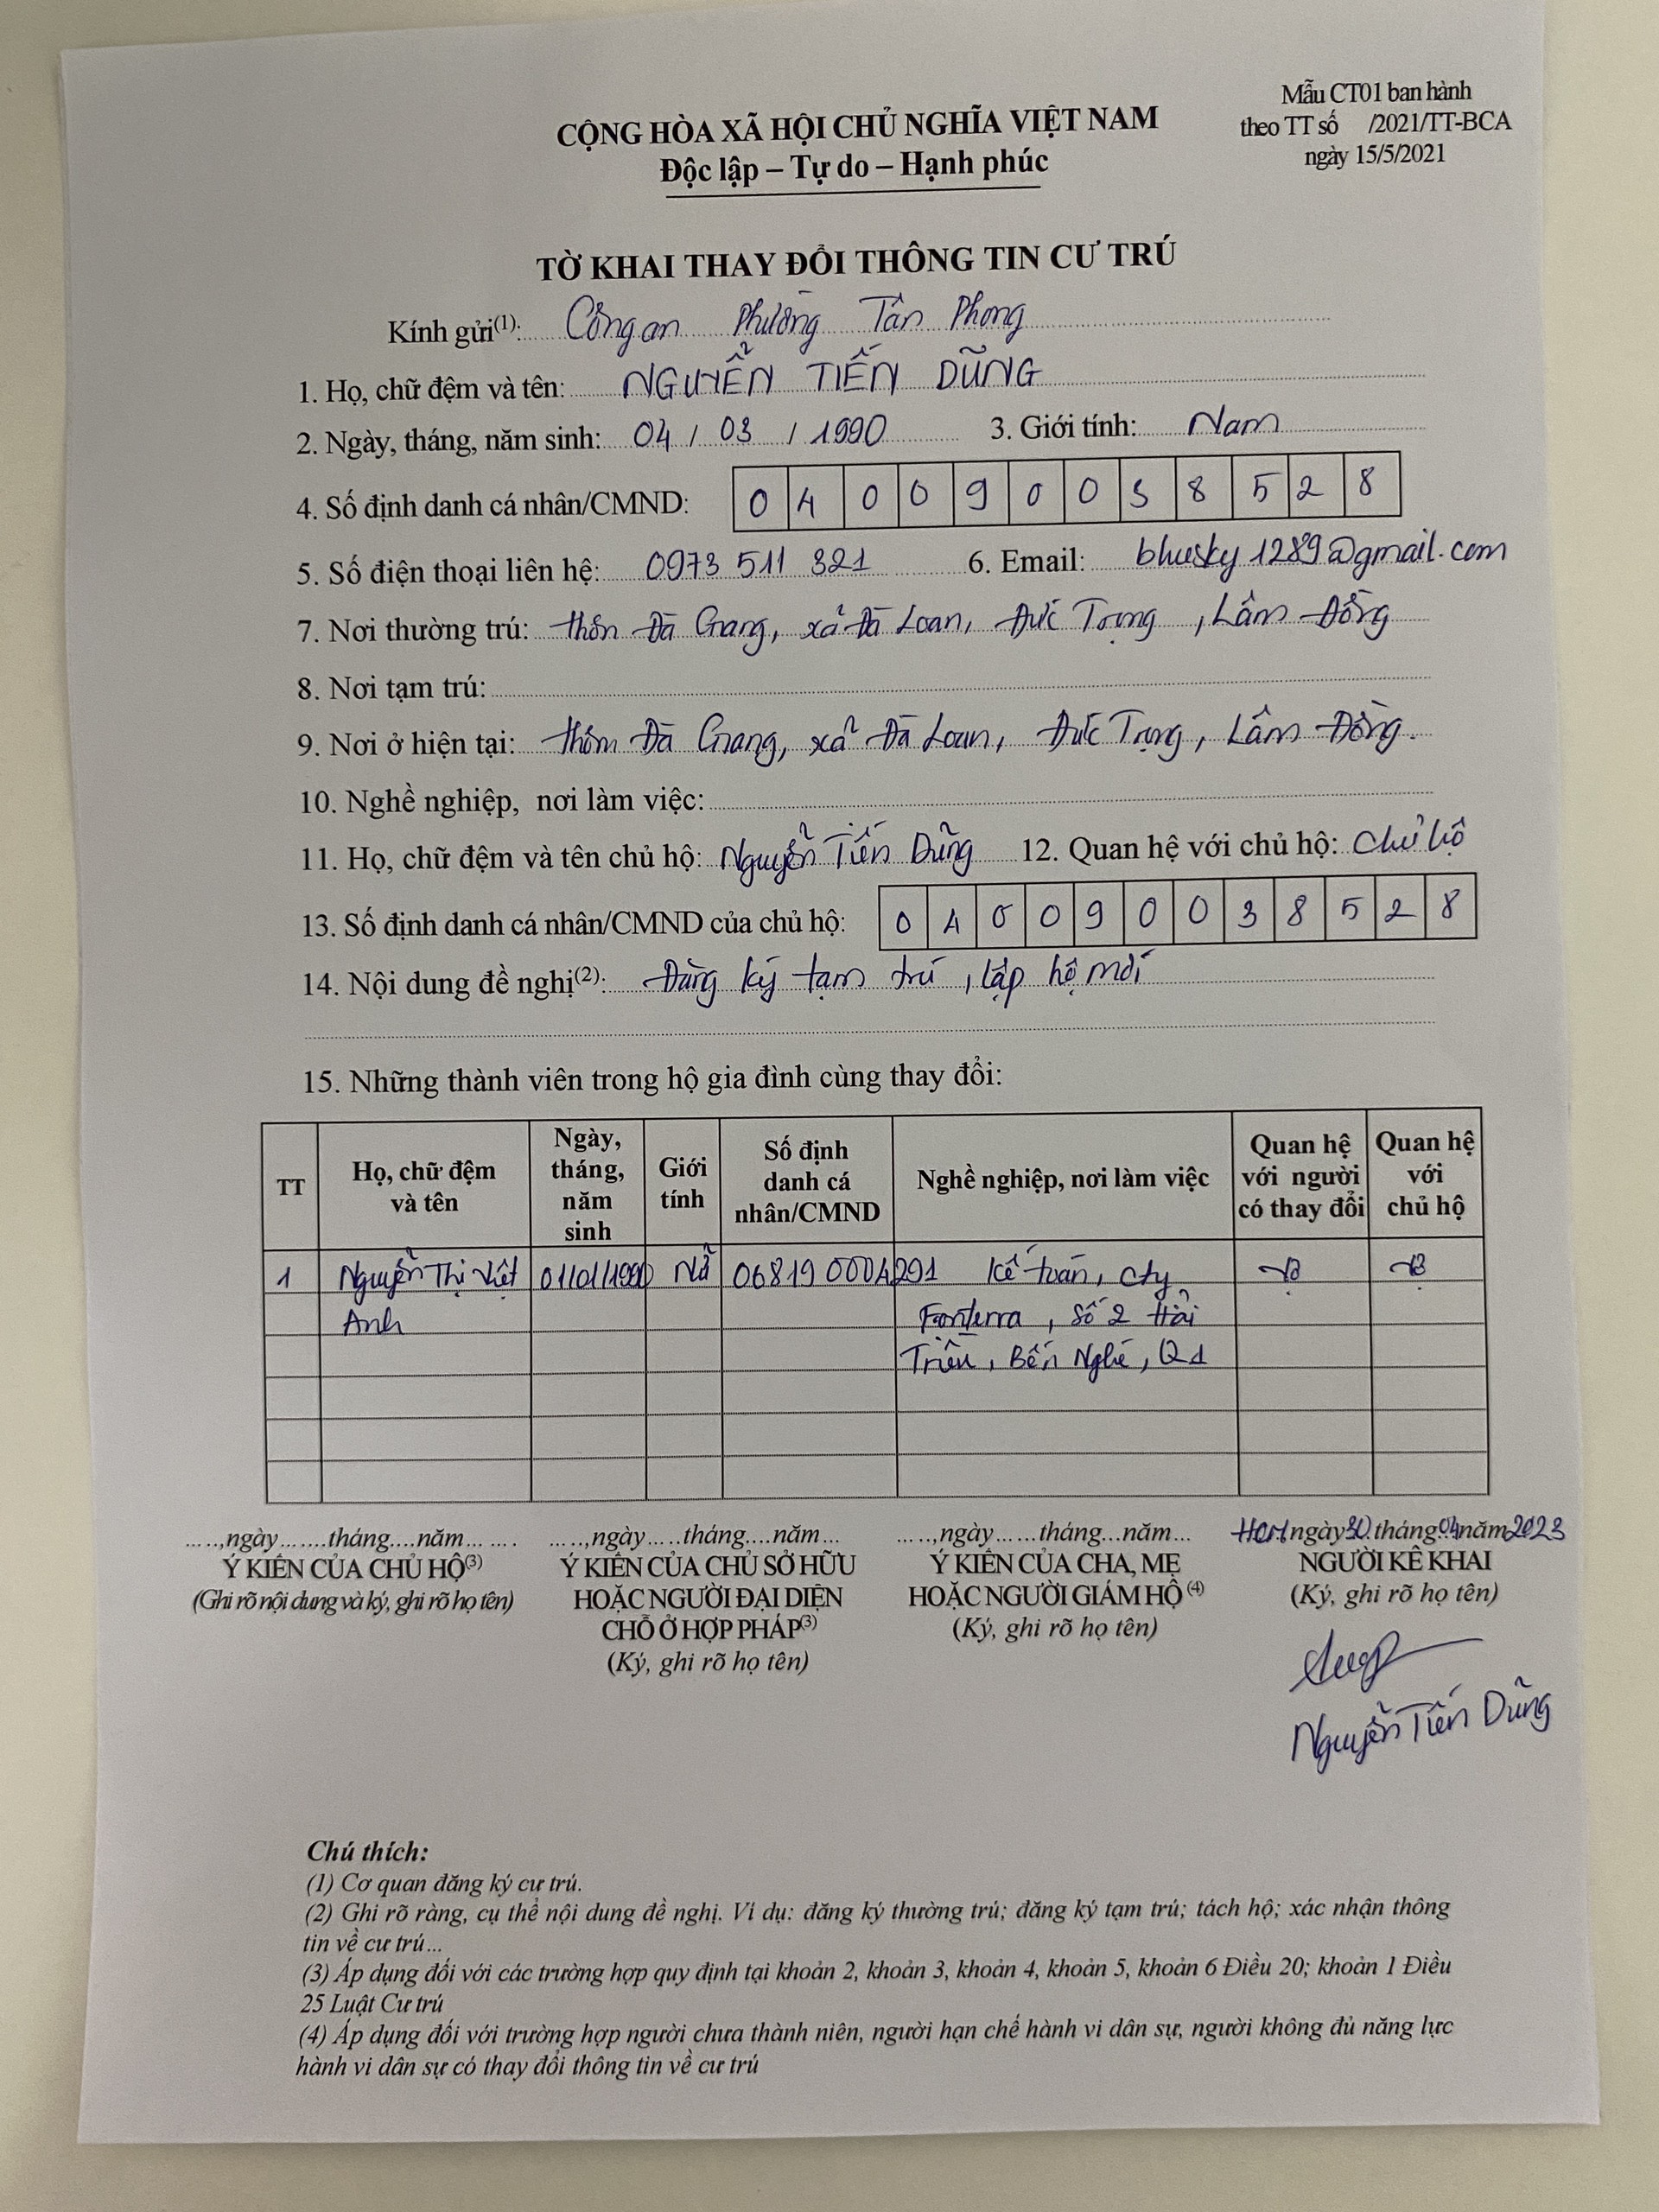 Mẫu CT01 ban hành
theo TT số /2021/TT-BCA
ngày 15/5/2021
CỘNG HÒA XÃ HỘI CHỦ NGHĨA VIỆT NAM
Độc lập – Tự do – Hạnh phúc
TỜ KHAI THAY ĐỔI THÔNG TIN CƯ TRÚ
Kính gửi(1): Công an Phường Tân Phong
1. Họ, chữ đệm và tên: NGUYỄN TIẾN DŨNG
2. Ngày, tháng, năm sinh: 04 / 03 / 1990 3. Giới tính: Nam
4. Số định danh cá nhân/CMND: 0 4 0 0 9 0 0 3 8 5 2 8
5. Số điện thoại liên hệ: 0973 511 321 6. Email: bluesky1289@gmail.com
7. Nơi thường trú: thôn Đà Giang, xã Đà Loan, Đức Trọng, Lâm Đồng
8. Nơi tạm trú:
9. Nơi ở hiện tại: thôn Đà Giang, xã Đà Loan, Đức Trọng, Lâm Đồng.
10. Nghề nghiệp, nơi làm việc:
11. Họ, chữ đệm và tên chủ hộ: Nguyễn Tiến Dũng 12. Quan hệ với chủ hộ: Chủ hộ
13. Số định danh cá nhân/CMND của chủ hộ: 0 4 0 0 9 0 0 3 8 5 2 8
14. Nội dung đề nghị(2): Đăng ký tạm trú, lập hộ mới
15. Những thành viên trong hộ gia đình cùng thay đổi:
TT Họ, chữ đệm và tên Ngày, tháng, năm sinh Giới tính Số định danh cá nhân/CMND Nghề nghiệp, nơi làm việc Quan hệ với người có thay đổi Quan hệ với chủ hộ
1 Nguyễn Thị Việt 01/01/1990 Nữ 068190004291 Kế toán, Cty Vợ Vợ
Anh Fonterra, Số 2 Hải
Triều, Bến Nghé, Q1
.....,ngày.......tháng....năm........ .....,ngày.....tháng....năm... .....,ngày......tháng...năm... HCM ngày 30 tháng 04 năm 2023
Ý KIẾN CỦA CHỦ HỘ(3) Ý KIẾN CỦA CHỦ SỞ HỮU Ý KIẾN CỦA CHA, MẸ NGƯỜI KÊ KHAI
(Ghi rõ nội dung và ký, ghi rõ họ tên) HOẶC NGƯỜI ĐẠI DIỆN HOẶC NGƯỜI GIÁM HỘ (4) (Ký, ghi rõ họ tên)
CHỖ Ở HỢP PHÁP(3) (Ký, ghi rõ họ tên)
(Ký, ghi rõ họ tên)
Nguyễn Tiến Dũng
Chú thích:
(1) Cơ quan đăng ký cư trú.
(2) Ghi rõ ràng, cụ thể nội dung đề nghị. Ví dụ: đăng ký thường trú; đăng ký tạm trú; tách hộ; xác nhận thông
tin về cư trú...
(3) Áp dụng đối với các trường hợp quy định tại khoản 2, khoản 3, khoản 4, khoản 5, khoản 6 Điều 20; khoản 1 Điều
25 Luật Cư trú
(4) Áp dụng đối với trường hợp người chưa thành niên, người hạn chế hành vi dân sự, người không đủ năng lực
hành vi dân sự có thay đổi thông tin về cư trú